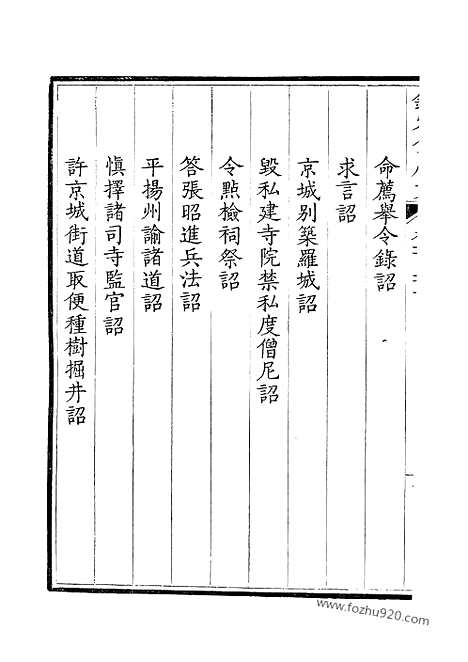 命薦舉令錄詔
求言詔
京城別築羅城詔
毀私建寺院禁私度僧尼詔
令點檢祠祭詔
答張昭進兵法詔
平揚州諭諸道詔
慎擇諸司寺監官詔
許京城街道取便種樹掘井詔
www.fozhu920.com